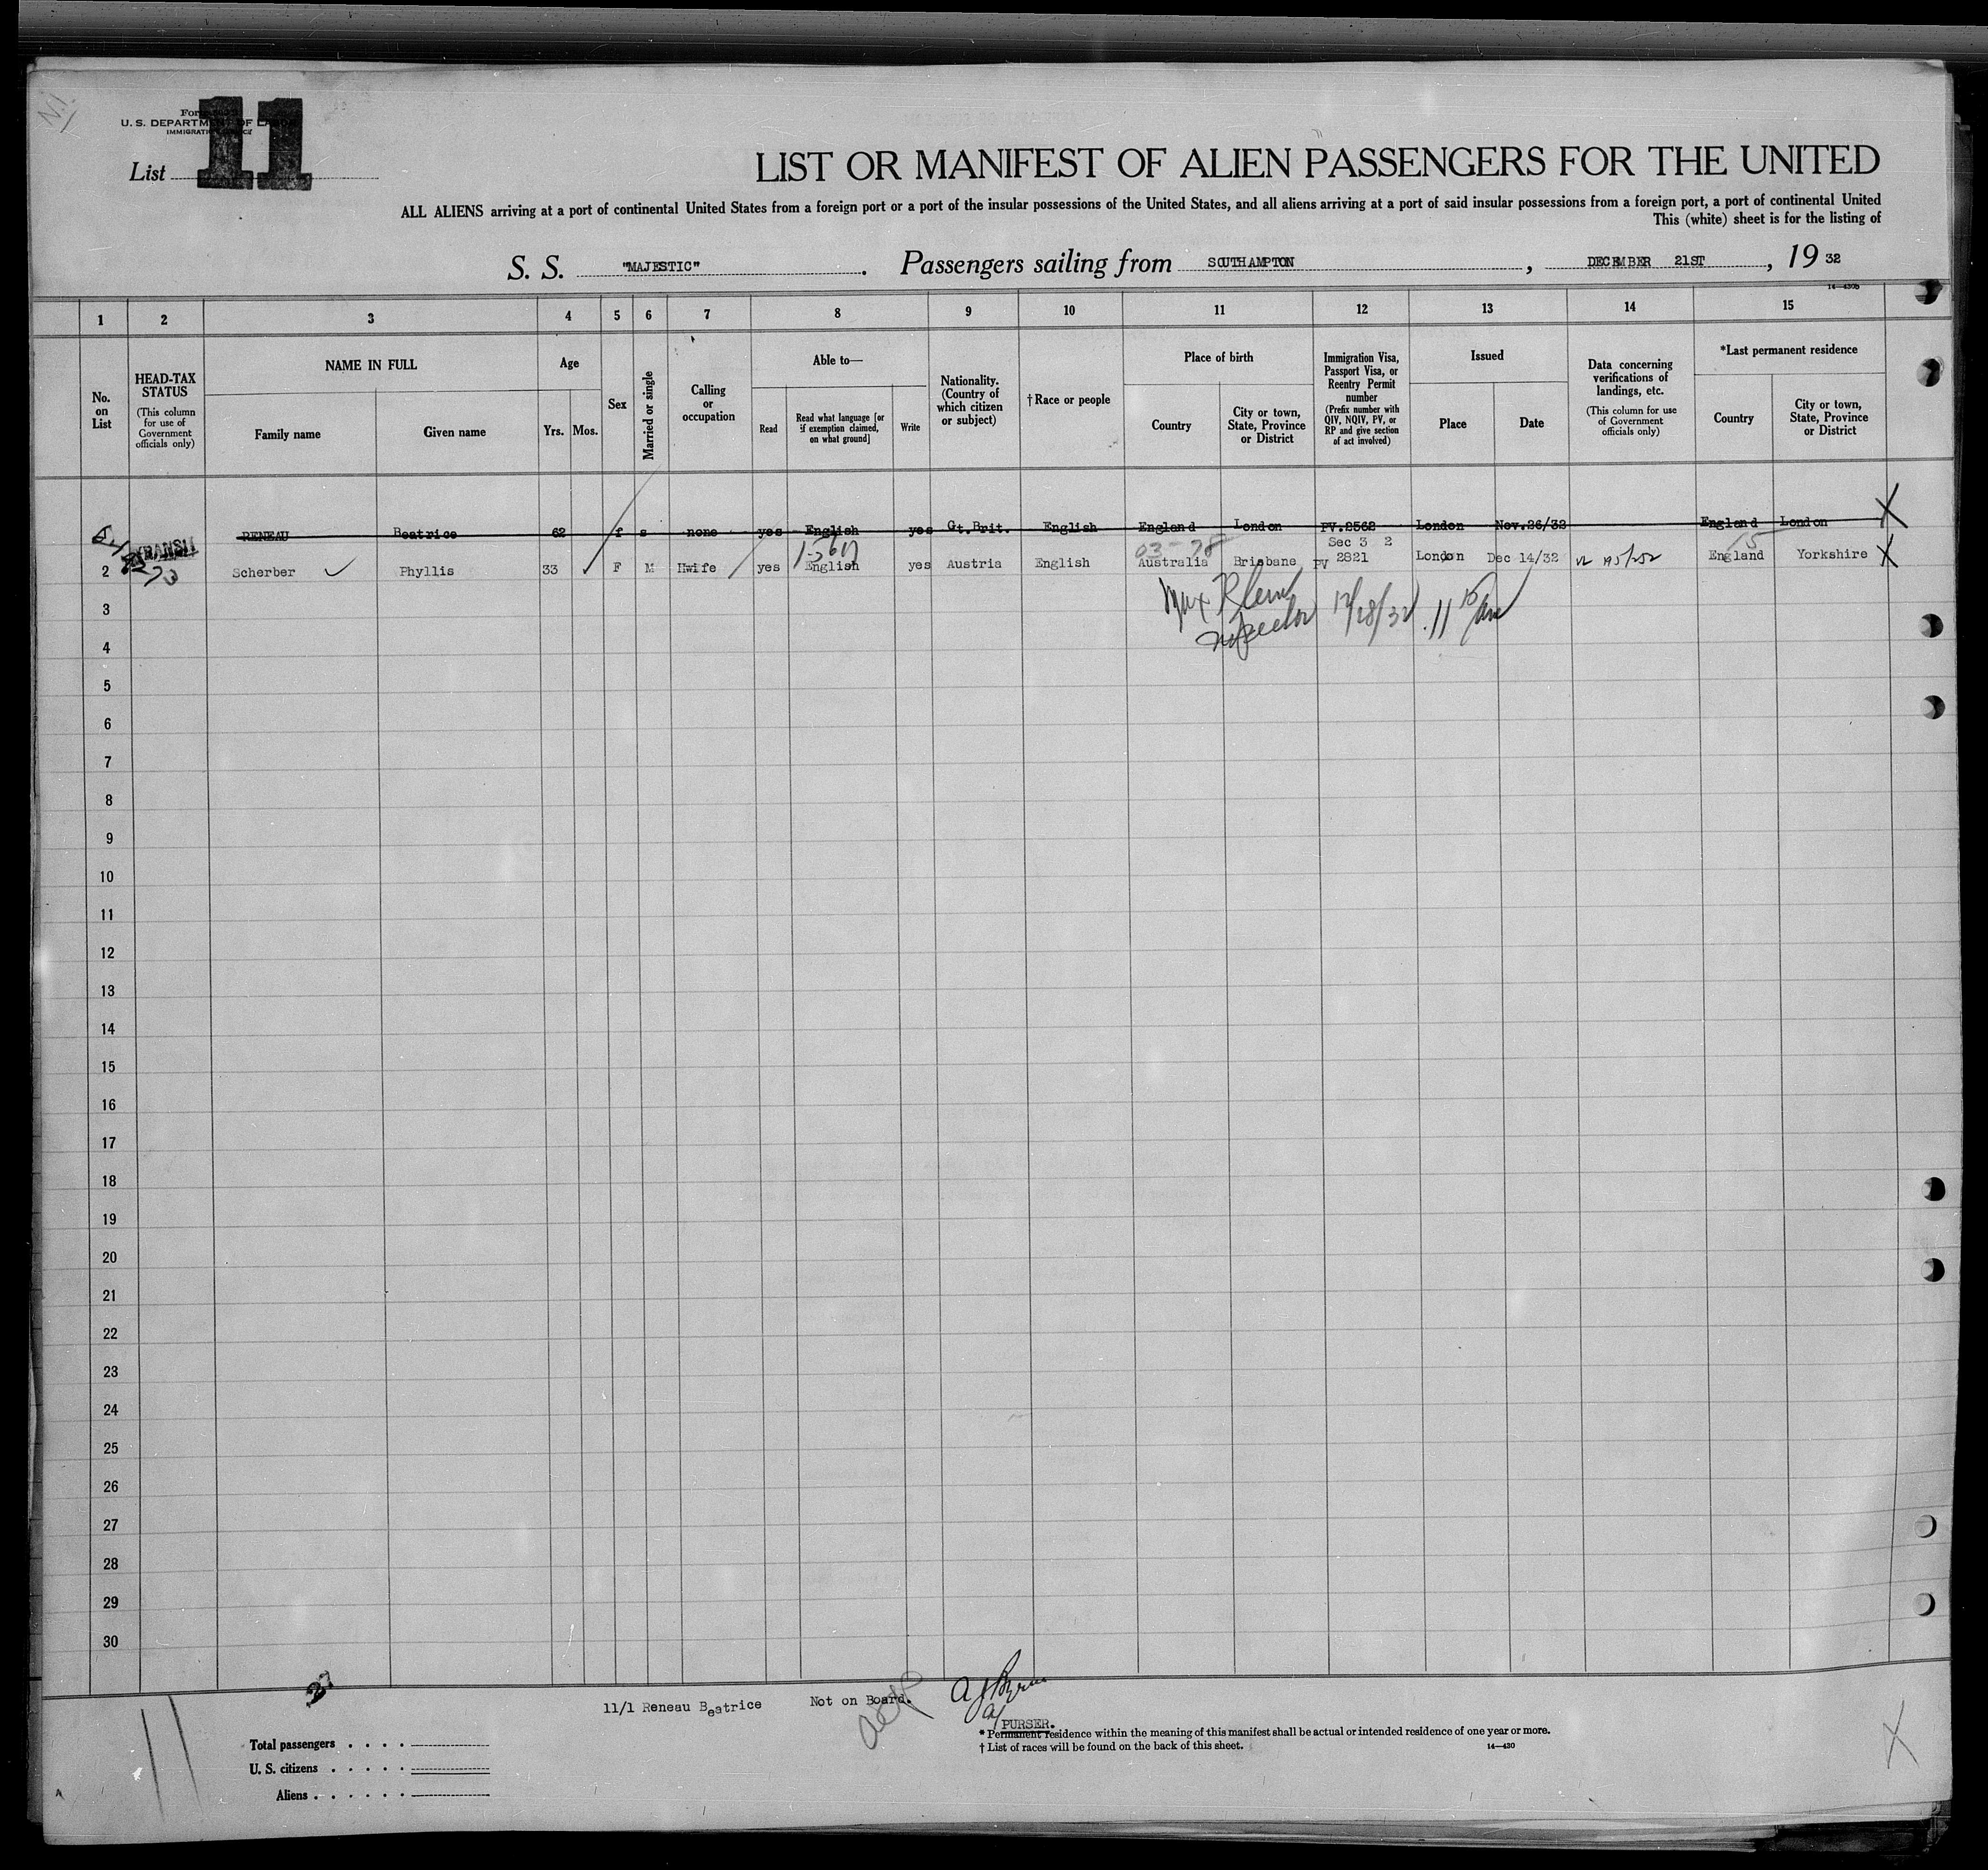 11
U. S. DEPARTMENT OF LABOR
List
LIST OR MANIFEST OF ALIEN PASSENGERS FOR THE UNITED
ALL ALIENS arriving at a port of continental United States from a foreign port or a port of the insular possessions of the United States, and all aliens arriving at a port of said insular possessions from a foreign port, a port of continental United
This (white) sheet is for the listing of
S. S. "MAJESTIC". Passengers sailing from SOUTHAMPTON, DECEMBER 21ST, 19 32
1 2 3 4 5 6 7 8 9 10 11 12 13 14 15
No. on List
HEAD-TAX STATUS
(This column for use of Government officials only)
NAME IN FULL
Family name
Given name
Age
Yrs. Mos.
Sex
Married or single
Calling or occupation
Able to—
Read
Read what language [or if exemption claimed, on what ground]
Write
Nationality. (Country of which citizen or subject)
†Race or people
Place of birth
Country
City or town, State, Province or District
Immigration Visa, Passport Visa, or Reentry Permit number
(Prefix number with QIV, NQIV, PV, or RP and give section of act involved)
Issued
Place
Date
Data concerning verifications of landings, etc.
(This column for use of Government officials only)
*Last permanent residence
Country
City or town, State, Province or District
RENEAU Beatrice 62 f s none yes English yes Gt.Brit. English England London PV.2562 London Nov.26/32 England London X
TRANSIT
Sec 3 2
03-78
2 Scherber Phyllis 33 F M Hwife yes English yes Austria English Australia Brisbane PV 2821 London Dec 14/32 England Yorkshire X
Inspector 12/28/32
3
4
5
6
7
8
9
10
11
12
13
14
15
16
17
18
19
20
21
22
23
24
25
26
27
28
29
30
11/1 Reneau Beatrice Not on Board.
PURSER.
* Permanent residence within the meaning of this manifest shall be actual or intended residence of one year or more.
† List of races will be found on the back of this sheet.
14—430
Total passengers
U. S. citizens
Aliens